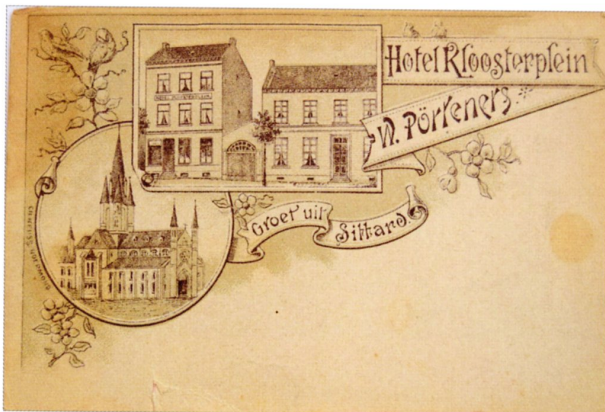 Hotel Kloosterplein
W. Pörteners
Groet uit
Sittard.